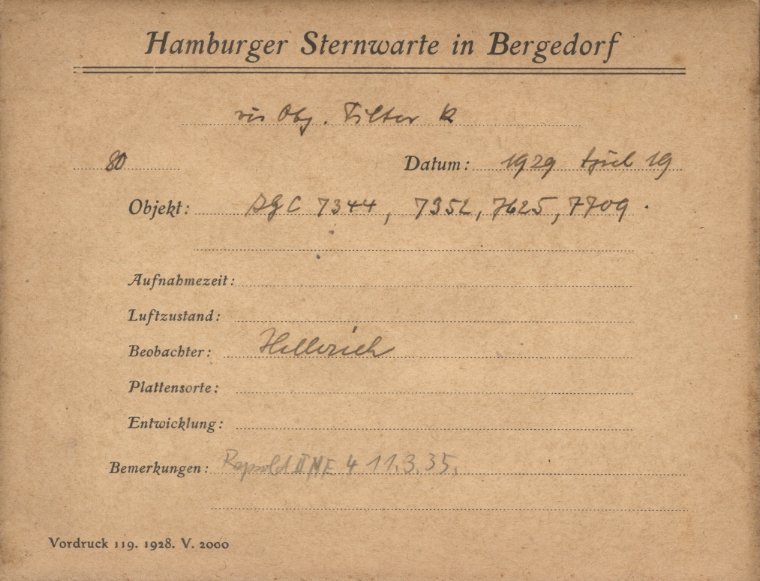 Hamburger Sternwarte in Bergedorf
vis Obj. Filter R
80 Datum: 1929 April 19
Objekt: BGC 7344, 7352, 7625, 7709.
Aufnahmezeit:
Luftzustand:
Beobachter: Hellerich
Plattensorte:
Entwicklung:
Bemerkungen: Repsold II NE 4 11.3.35.
Vordruck 119. 1928. V. 2000